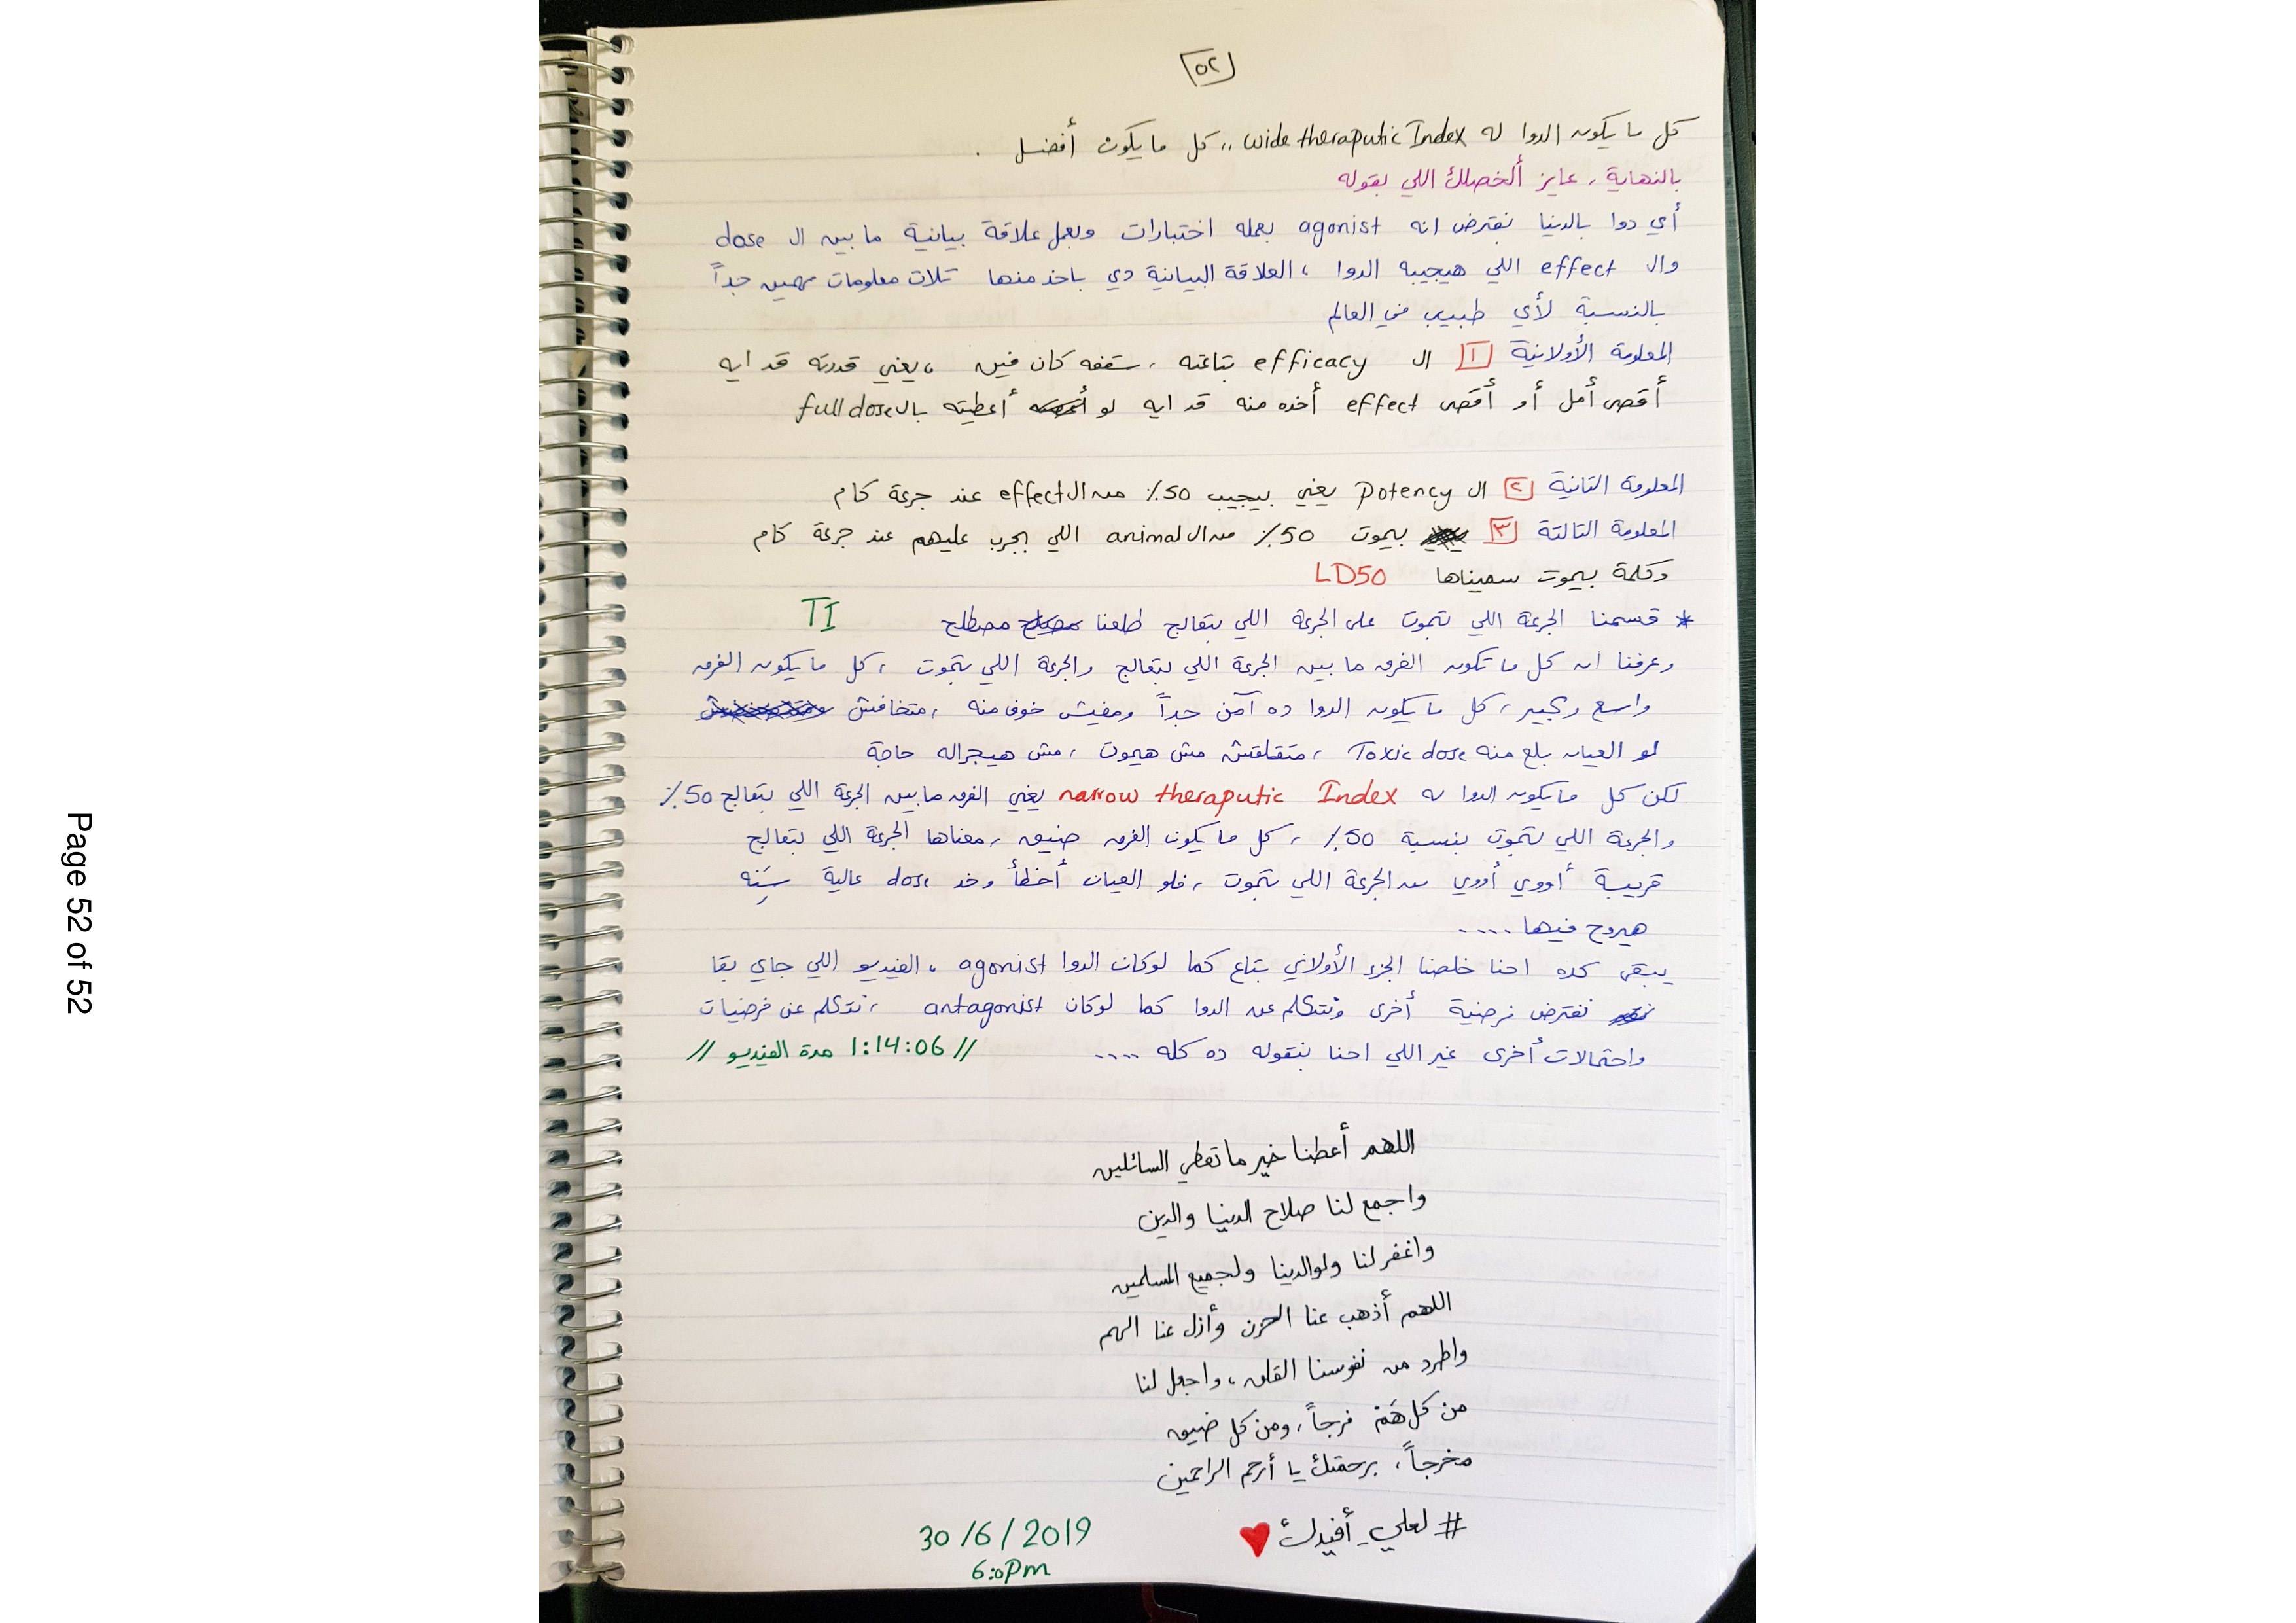 ٥٢
كل ما يكون الدوا له wide theraputic Index ,, كل ما يكون أفضل .
بالنهاية ، عايز ألخصلك اللي بقوله
أي دوا بالدنيا نفترض انه agonist بعمله اختبارات وبعمل علاقة بيانية ما بين ال dose
وال effect اللي هيجيبه الدوا ، العلاقة البيانية دي باخد منها تلات معلومات مهمين جداً
بالنسبة لأي طبيب في العالم
المعلومة الأولانية ١ ال efficacy بتاعته ، سقفه كان فين ، يعني قدرته قد ايه
أقصى أمل أو أقصى effect أخده منه قد ايه لو أعطيته بال full dose
المعلومة التانية ٢ ال Potency يعني بيجيب 50٪ من ال effect عند جرعة كام
المعلومة التالتة ٣ بيموت 50٪ من ال animal اللي بجرب عليهم عند جرعة كام
وكلمة بيموت سميناها LD50
* قسمنا الجرعة اللي بتموت على الجرعة اللي بتعالج طلعنا مصطلح TI
وعرفنا ان كل ما تكون الفرق ما بين الجرعة اللي بتعالج والجرعة اللي بتموت ، كل ما يكون الفرق
واسع وكبير ، كل ما يكون الدوا ده آمن جداً ومفيش خوف منه ، متخافش
لو العيان بلع منه Toxic dose ، متقلقش مش هيموت ، مش هيجراله حاجة
لكن كل ما يكون الدوا له narrow theraputic Index يعني الفرق ما بين الجرعة اللي بتعالج 50٪
والجرعة اللي بتموت بنسبة 50٪ ، كل ما يكون الفرق ضيق ، معناها الجرعة اللي بتعالج
قريبة أووي أووي من الجرعة اللي بتموت ، فلو العيان أخطأ وخد dose عالية سِنِّه
هيروح فيها ....
يبقى كده احنا خلصنا الجزء الأولاني بتاع كما لو كان الدوا agonist ، الفيديو اللي جاي بقا
نفترض فرضية أخرى ونتكلم عن الدوا كما لو كان antagonist ، نتكلم عن فرضيات
واحتمالات أخرى غير اللي احنا بنقوله ده كله .... // 1:14:06 مدة الفيديو //
اللهم أعطنا خير ما تعطي السائلين
واجمع لنا صلاح الدنيا والدين
واغفر لنا ولوالدينا ولجميع المسلمين
اللهم أذهب عنا الحزن وأزل عنا الهم
واطرد من نفوسنا القلق ، واجعل لنا
من كل هَمّ فرجاً ، ومن كل ضيق
مخرجاً ، برحمتك يا أرحم الراحمين
# لعلي_أفيدك
30/6/2019
6:0Pm
Page 52 of 52